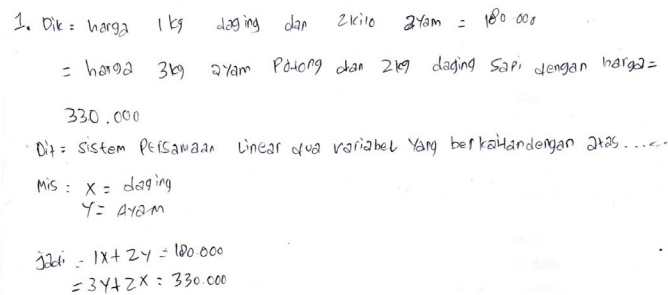 1. Dik = harga 1 kg daging dan 2 kilo ayam = 180.000
= harga 3kg ayam Potong dan 2kg daging sapi dengan harga=
330.000
Dit = Sistem Persamaan Linear dua variabel Yang berkaitan dengan atas .....
Mis : X = daging
Y = Ayam
jadi = 1X + 2Y = 180.000
= 3Y + 2X = 330.000